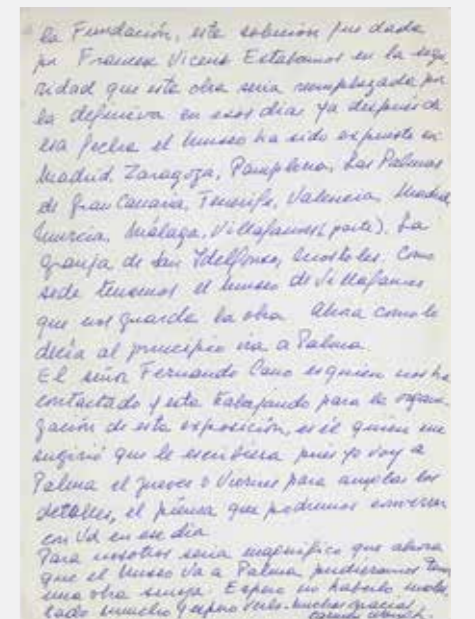 la Fundación, esta solución fue dada
por Francesc Vicens Estabamos en la segu
ridad que esta obra seria remplazada por
la definiva en esos dias ya después de
esa fecha el Museo ha sido expuesto en
Madrid, Zaragoza, Pamplona, Las Palmas
de Gran Canaria, Tenerife, Valencia, Madrid
Murcia, Málaga, Villafames (parte). La
Granja de San Ydelfonso, Mostoles. Como
sede tenemos el museo de Villafames
que nos guarda la obra. Ahora como le
decia al principio va a Palma.
El señor Fernando Cano es quien nos ha
contactado y esta trabajando para la organi
zación de esta exposición, es él quién me
sugirió que le escribiera pues yo voy a
Palma el jueves o Viernes para ampliar los
detalles, el piensa que podremos conversar
con Ud en ese dia
Para nosotros seria magnifico que ahora
que el Museo va a Palma pudieramos tener
una obra suya. Espero no haberlo moles
tado mucho y espero verlo. Muchas gracias
Carmen